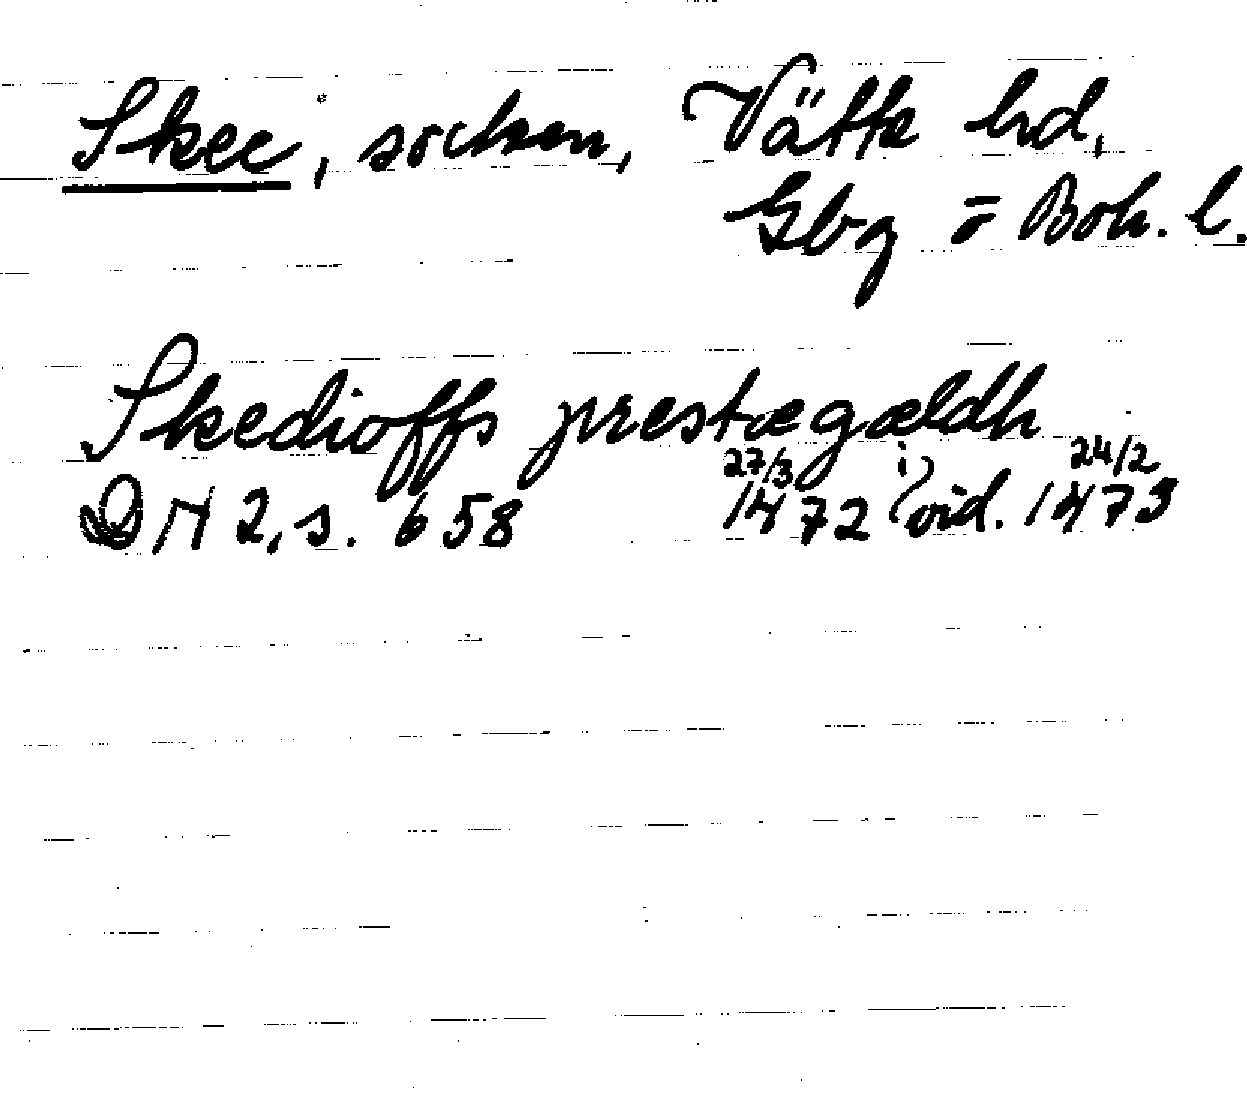 Skee, socken, Vätte hd,
Gbg o Boh. l.
Skedioffs prestægældh
DN 2, s. 658 27/3 1472 i vid. 24/2 1473